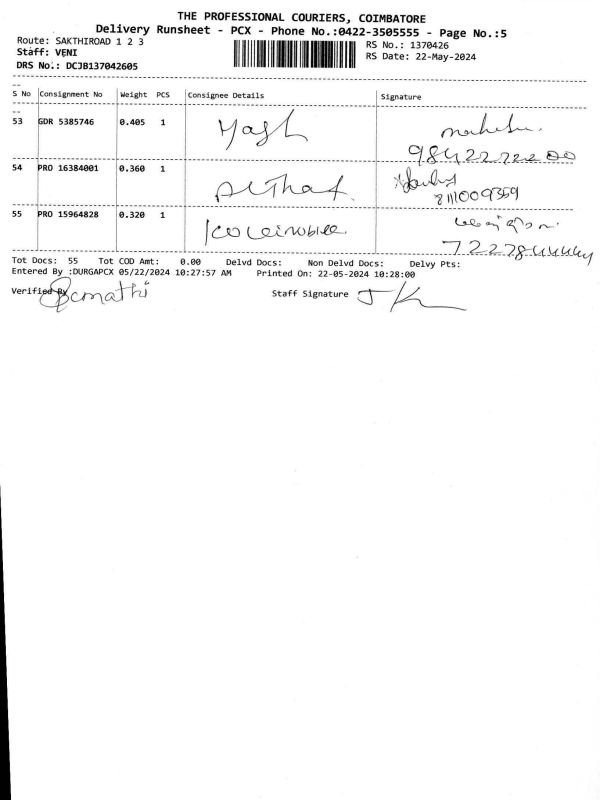 THE PROFESSIONAL COURIERS, COIMBATORE
Delivery Runsheet - PCX - Phone No.:0422-3505555 - Page No.:5
Route: SAKTHIROAD 1 2 3
RS No.: 1370426
Staff: VENI
RS Date: 22-May-2024
DRS No.: DCJB137042605
S No Consignment No Weight PCS Consignee Details Signature
53 GDR 5385746 0.405 1 Yash
9842272200
54 PRO 16384001 0.360 1 Althaf
8111009359
55 PRO 15964828 0.320 1
Tot Docs: 55 Tot COD Amt: 0.00 Delvd Docs: Non Delvd Docs: Delvy Pts:
Entered By :DURGAPCX 05/22/2024 10:27:57 AM Printed On: 22-05-2024 10:28:00
Verified By Staff Signature